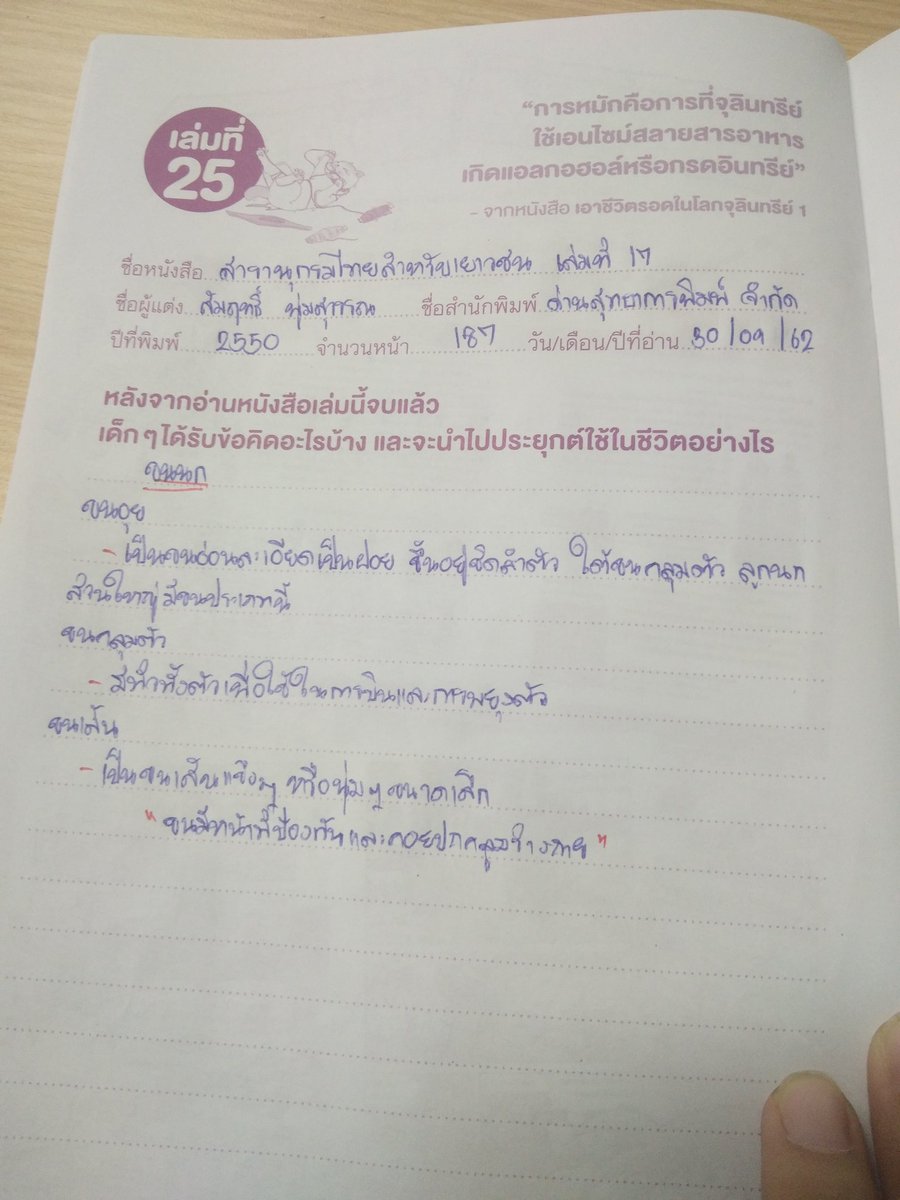 เล่มที่
25
"การหมักคือการที่จุลินทรีย์
ใช้เอนไซม์สลายสารอาหาร
เกิดแอลกอฮอล์หรือกรดอินทรีย์"
- จากหนังสือ เอาชีวิตรอดในโลกจุลินทรีย์ 1
ชื่อหนังสือ สารานุกรมไทยสำหรับเยาวชน เล่มที่ 17
ชื่อผู้แต่ง สัมฤทธิ์ พุ่มสุวรรณ ชื่อสำนักพิมพ์ ด่านสุทธาการพิมพ์ จำกัด
ปีที่พิมพ์ 2550 จำนวนหน้า 187 วัน/เดือน/ปีที่อ่าน 30/09/62
หลังจากอ่านหนังสือเล่มนี้จบแล้ว
เด็กๆได้รับข้อคิดอะไรบ้าง และจะนำไปประยุกต์ใช้ในชีวิตอย่างไร
ขนนก
ขนอุย
- เป็นขนอ่อนละเอียดเป็นฝอย ขึ้นอยู่ชิดลำตัว ใต้ขนคลุมตัว ลูกนก
ส่วนใหญ่มีขนประเภทนี้
ขนคลุมตัว
- มีทั่วทั้งตัวเพื่อใช้ในการบินและการพยุงตัว
ขนเส้น
- เป็นขนเส้นแข็งๆ หรือนุ่มๆ ขนาดเล็ก
"ขนมีหน้าที่ป้องกันและคอยปกคลุมร่างกาย"